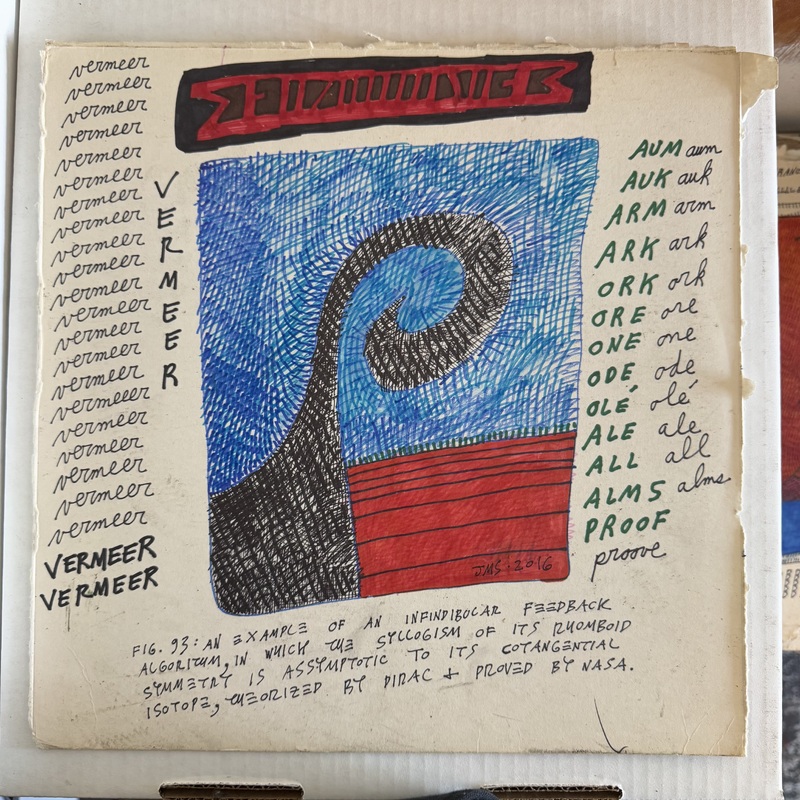 vermeer
vermeer
vermeer
vermeer
vermeer
vermeer
vermeer
vermeer
vermeer
vermeer
vermeer
vermeer
vermeer
vermeer
vermeer
vermeer
vermeer
vermeer
vermeer
vermeer
vermeer
VERMEER
VERMEER
VERMEER
AUM aum
AUK auk
ARM arm
ARK ark
ORK ork
ORE ore
ONE one
ODE ode
OLÉ olé
ALE ale
ALL all
ALMS alms
PROOF
proove
JMS · 2016
FIG. 93: AN EXAMPLE OF AN INFINDIBULAR FEEDBACK
ALGORITHM, IN WHICH THE SYLLOGISM OF ITS RHOMBOID
SYMMETRY IS ASSYMPTOTIC TO ITS COTANGENTIAL
ISOTOPE, THEORIZED BY DIRAC + PROVED BY NASA.